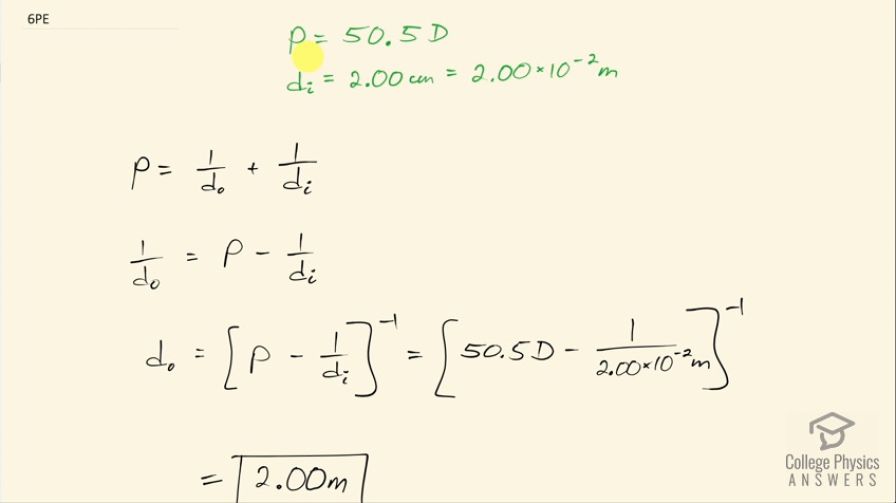 6PE
P = 50.5 D
di = 2.00 cm = 2.00 × 10⁻² m
P = 1/do + 1/di
1/do = P − 1/di
do = [P − 1/di]⁻¹ = [50.5 D − 1/(2.00 × 10⁻² m)]⁻¹
= 2.00 m
College Physics
ANSWERS